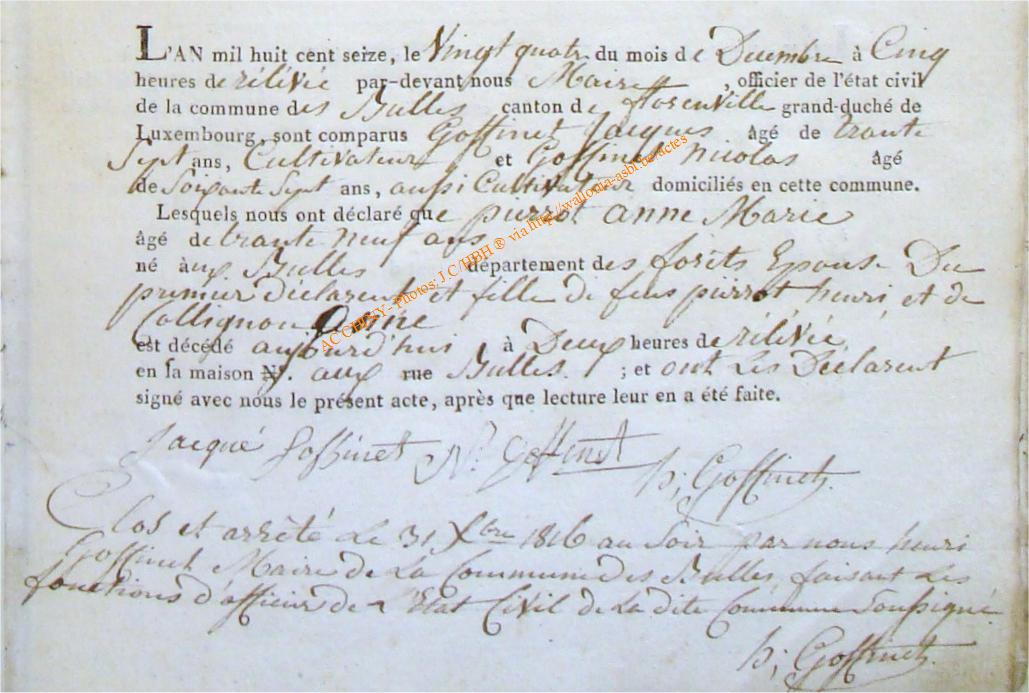 L'AN mil huit cent seize, le Vingt quatr du mois de Decembre à Cinq
heures de rélévée par-devant nous Maire , officier de l'état civil
de la commune des Bulles canton de florenville grand-duché de
Luxembourg, sont comparus Goffinet Jacques âgé de trante
Sept ans, Cultivateur et Goffinet Nicolas âgé
de Soixante Sept ans, aussi Cultivateur domiciliés en cette commune.
Lesquels nous ont déclaré que pierrot anne Marie
âgé de trante neuf ans
né àux Bulles département des forêts Epouse Du
premier déclarent et fille de feus pierrot henri et de
Collignon Anne
est décédé aujourd'hui à Deux heures de rélévée,
en la maison N°. aux rue Bulles ; et ont Les Déclarent
signé avec nous le présent acte, après que lecture leur en a été faite.
Jacque Goffinet N. Goffinet
h; Goffinet
Clos et arrêté Le 31 Xbre 1816 au Soir par nous henri
Goffinet Maire de La Commune des Bulles, faisant Les
fonctions d'officier de L'Etat Civil de La dite Commune Soussigné
h; Goffinet.
ACCHISNY- Photos J.C/HBH ® via http://wallonia-asbl.be/actes